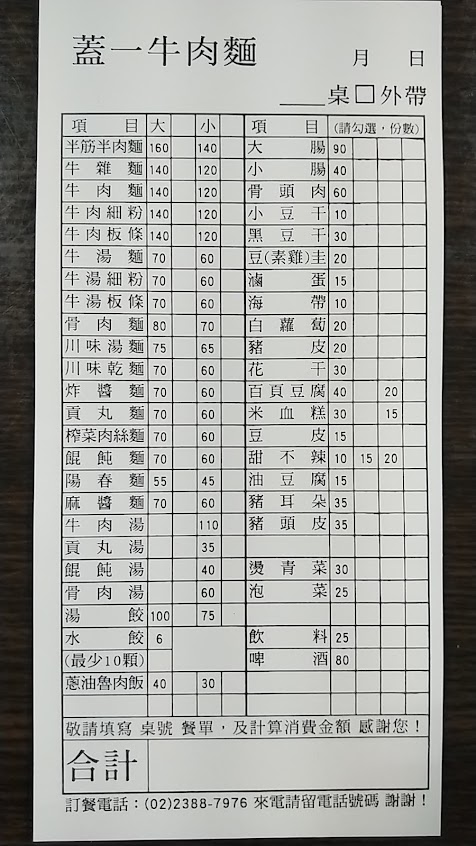 蓋一牛肉麵
月 日
桌□外帶
項目 大 小 項目 (請勾選,份數)
半筋半肉麵 160 140 大腸 90
牛雜麵 140 120 小腸 40
牛肉麵 140 120 骨頭肉 60
牛肉細粉 140 120 小豆干 10
牛肉板條 140 120 黑豆干 30
牛湯麵 70 60 豆(素雞)圭 20
牛湯細粉 70 60 滷蛋 15
牛湯板條 70 60 海帶 10
骨肉麵 80 70 白蘿蔔 20
川味湯麵 75 65 豬皮 20
川味乾麵 70 60 花干 30
炸醬麵 70 60 百頁豆腐 40 20
貢丸麵 70 60 米血糕 30 15
榨菜肉絲麵 70 60 豆皮 15
餛飩麵 70 60 甜不辣 10 15 20
陽春麵 55 45 油豆腐 15
麻醬麵 70 60 豬耳朵 35
牛肉湯 110 豬頭皮 35
貢丸湯 35
餛飩湯 40 燙青菜 30
骨肉湯 60 泡菜 25
湯餃 100 75
水餃 6 飲料 25
(最少10顆) 啤酒 80
蔥油魯肉飯 40 30
敬請填寫 桌號 餐單,及計算消費金額 感謝您!
合計
訂餐電話:(02)2388-7976 來電請留電話號碼 謝謝!